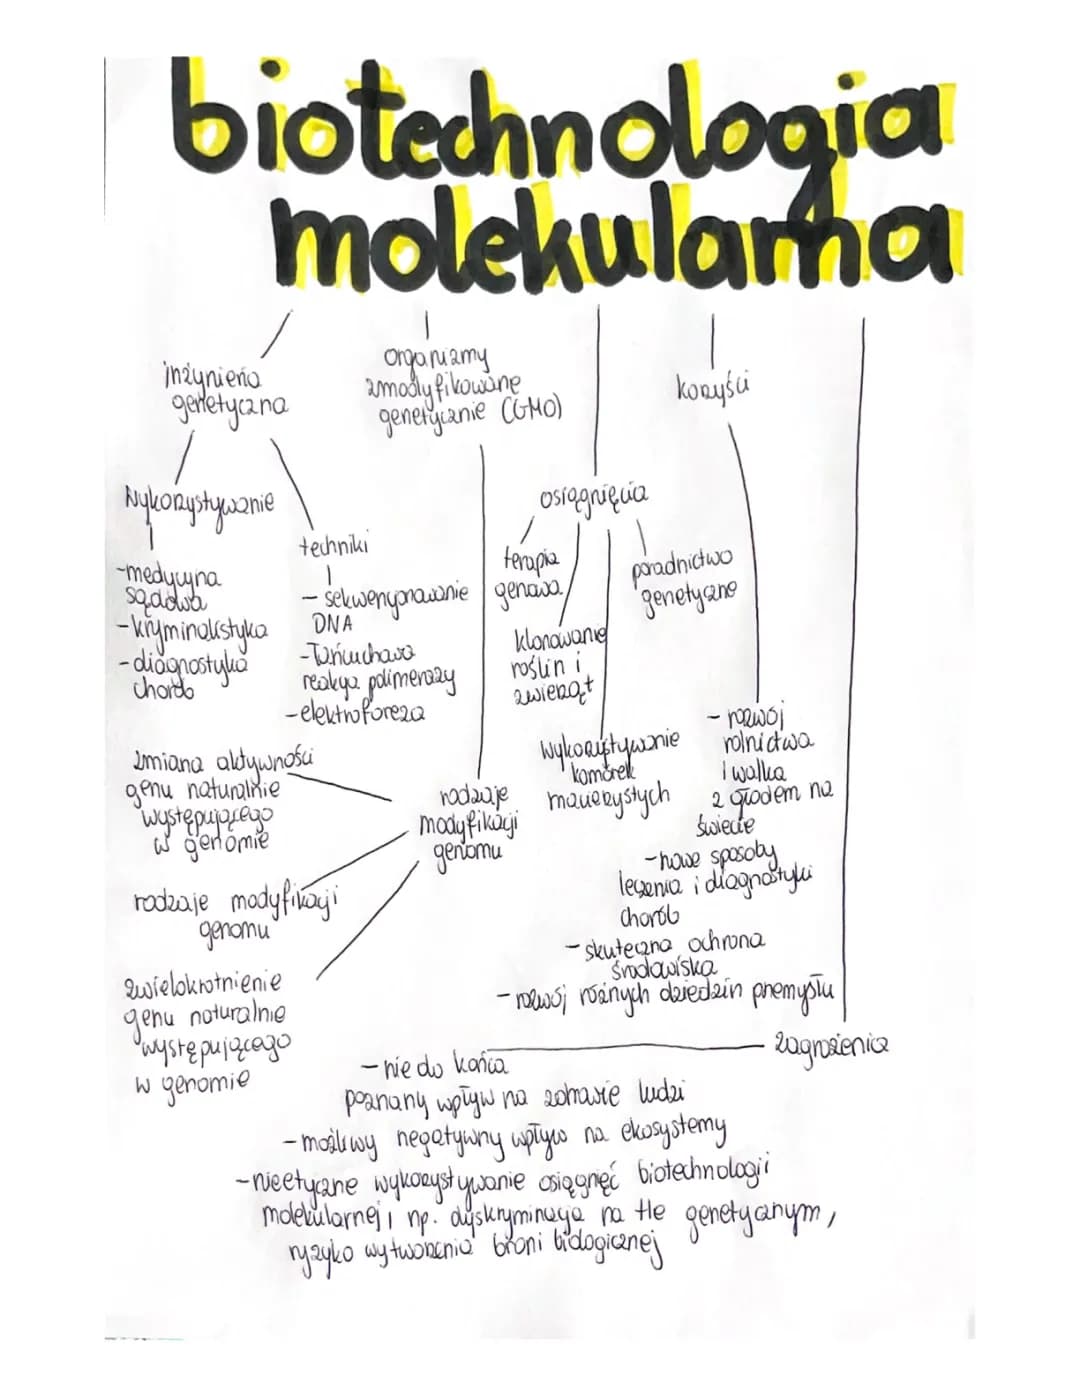 biotechnologia
molekularna
inżynieria
genetyczna
organizmy
zmodyfikowane
genetycznie (GMO)
korzyści
Wykorzystywanie
-medycyna
sądowa
-kryminalistyka
-diagnostyka
chorób
techniki
- sekwencjonowanie
DNA
-Łańcuchowa
reakcja polimerazy
-elektroforeza
osiągnięcia
terapia
genowa
poradnictwo
genetyczne
klonowanie
roślin i
zwierząt
wykorzystywanie
komórek
macierzystych
- rozwój
rolnictwa
i walka
z głodem na
świecie
-nowe sposoby
leczenia i diagnostyki
chorób
- skuteczna ochrona
środowiska
- rozwój różnych dziedzin przemysłu
zmiana aktywności
genu naturalnie
występującego
w genomie
rodzaje
modyfikacji
genomu
rodzaje modyfikacji
genomu
zwielokrotnienie
genu naturalnie
występującego
w genomie
zagrożenia
- nie do końca
poznany wpływ na zdrowie ludzi
- możliwy negatywny wpływ na ekosystemy
-nieetyczne wykorzystywanie osiągnięć biotechnologii
molekularnej, np. dyskryminacja na tle genetycznym,
ryzyko wytworzenia broni biologicznej